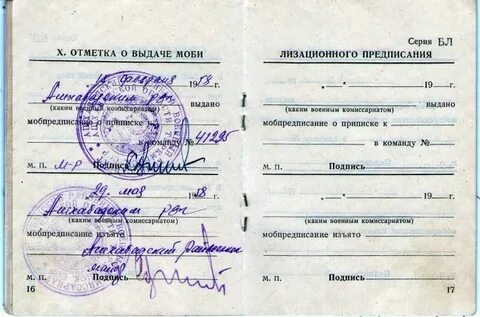 Серия БЛ
X. ОТМЕТКА О ВЫДАЧЕ МОБИ
15 февраля 1958 г.
Ашхабадским рвк выдано
(каким военным комиссариатом)
мобпредписание о приписке
в команду № 41295
М. П. М-р Подпись
29 мая 1958 г.
Ашхабадским рвк
(каким военным комиссариатом)
мобпредписание изъято
Ашхабадский
майор
м. п. Подпись
16
ЛИЗАЦИОННОГО ПРЕДПИСАНИЯ
19 г.
выдано
(каким военным комиссариатом)
мобпредписание о приписке к
в команду №
М. П. Подпись
19 г.
(каким военным комиссариатом)
мобпредписание изъято
м. п. Подпись
17